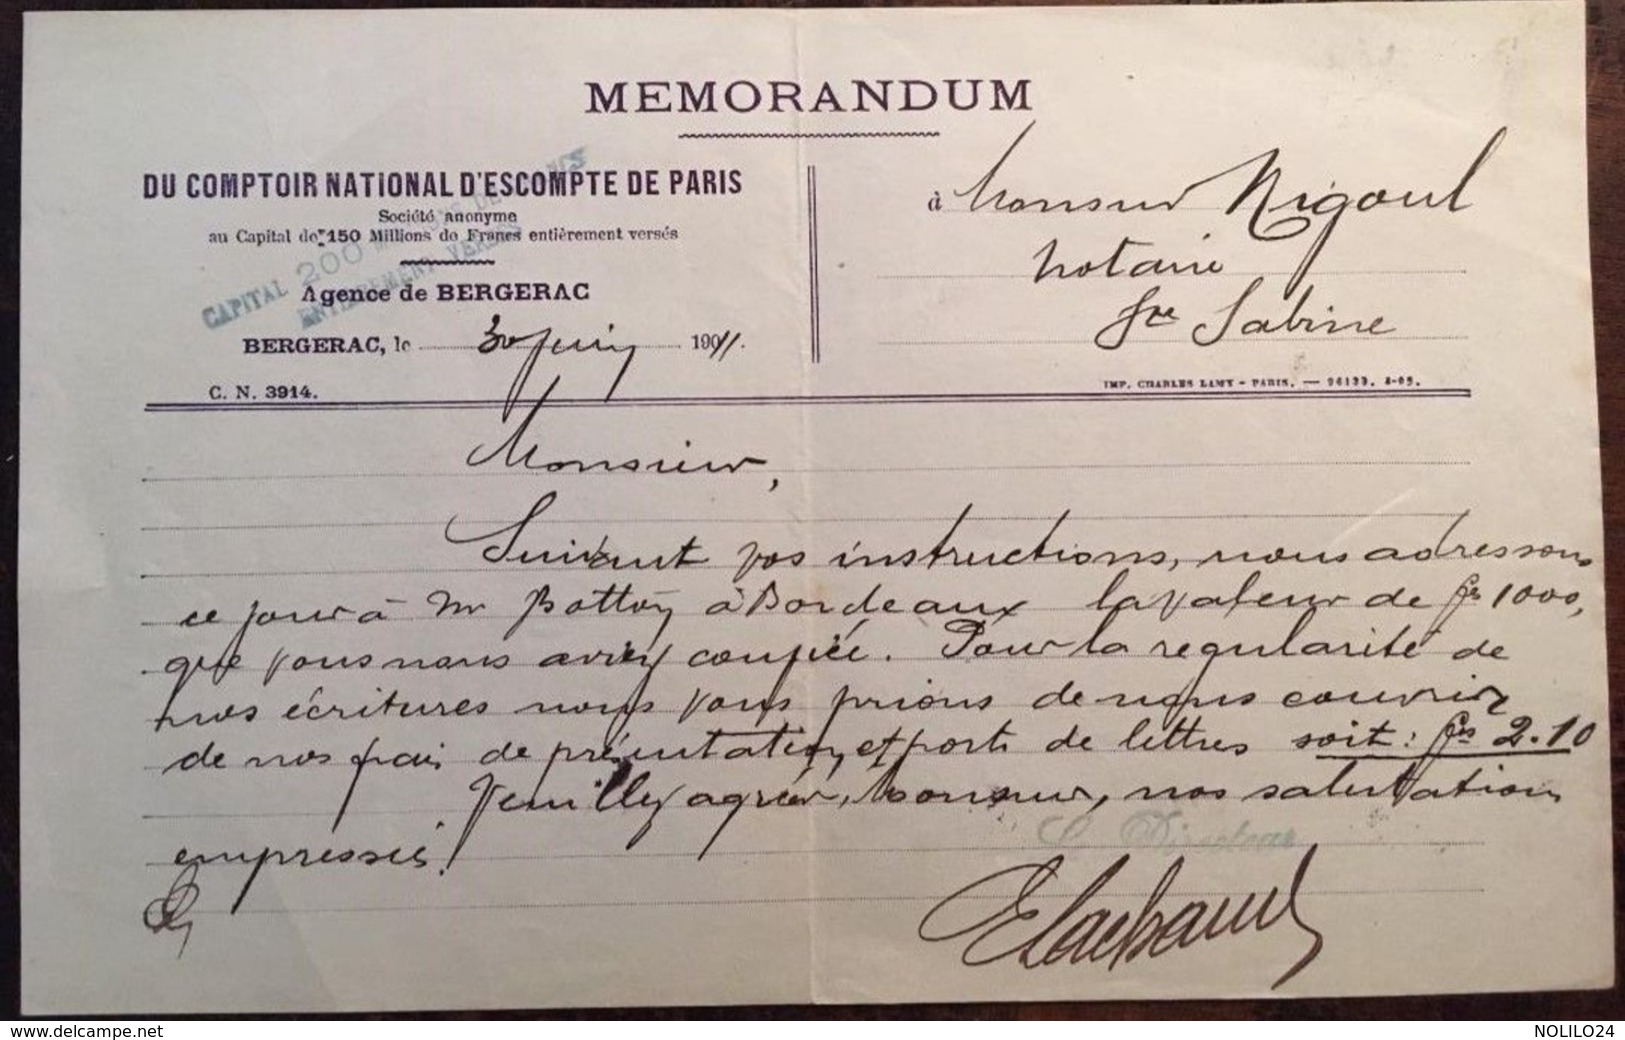 MEMORANDUM
DU COMPTOIR NATIONAL D'ESCOMPTE DE PARIS
Société anonyme
au Capital de 150 Millions de Francs entièrement versés
CAPITAL 200 MILLIONS DE FRANCS
ENTIEREMENT VERSÉS
Agence de BERGERAC
BERGERAC, le 30 juin 1911.
C. N. 3914.
à Monsieur Rigoul
notaire
Ste Sabine
IMP. CHARLES LAMY - PARIS. — 96133. 8-09.
Monsieur,
Suivant vos instructions, nous adressons
ce jour à Mr à Bordeaux la valeur de frs 1000,
que vous nous aviez confiée. Pour la régularité de
nos écritures nous vous prions de nous couvrir
de nos frais de présentation et ports de lettres soit : frs 2.10
Veuillez agréer, Monsieur, nos salutations
empressées.
Le Directeur
www.delcampe.net
NOLILO24